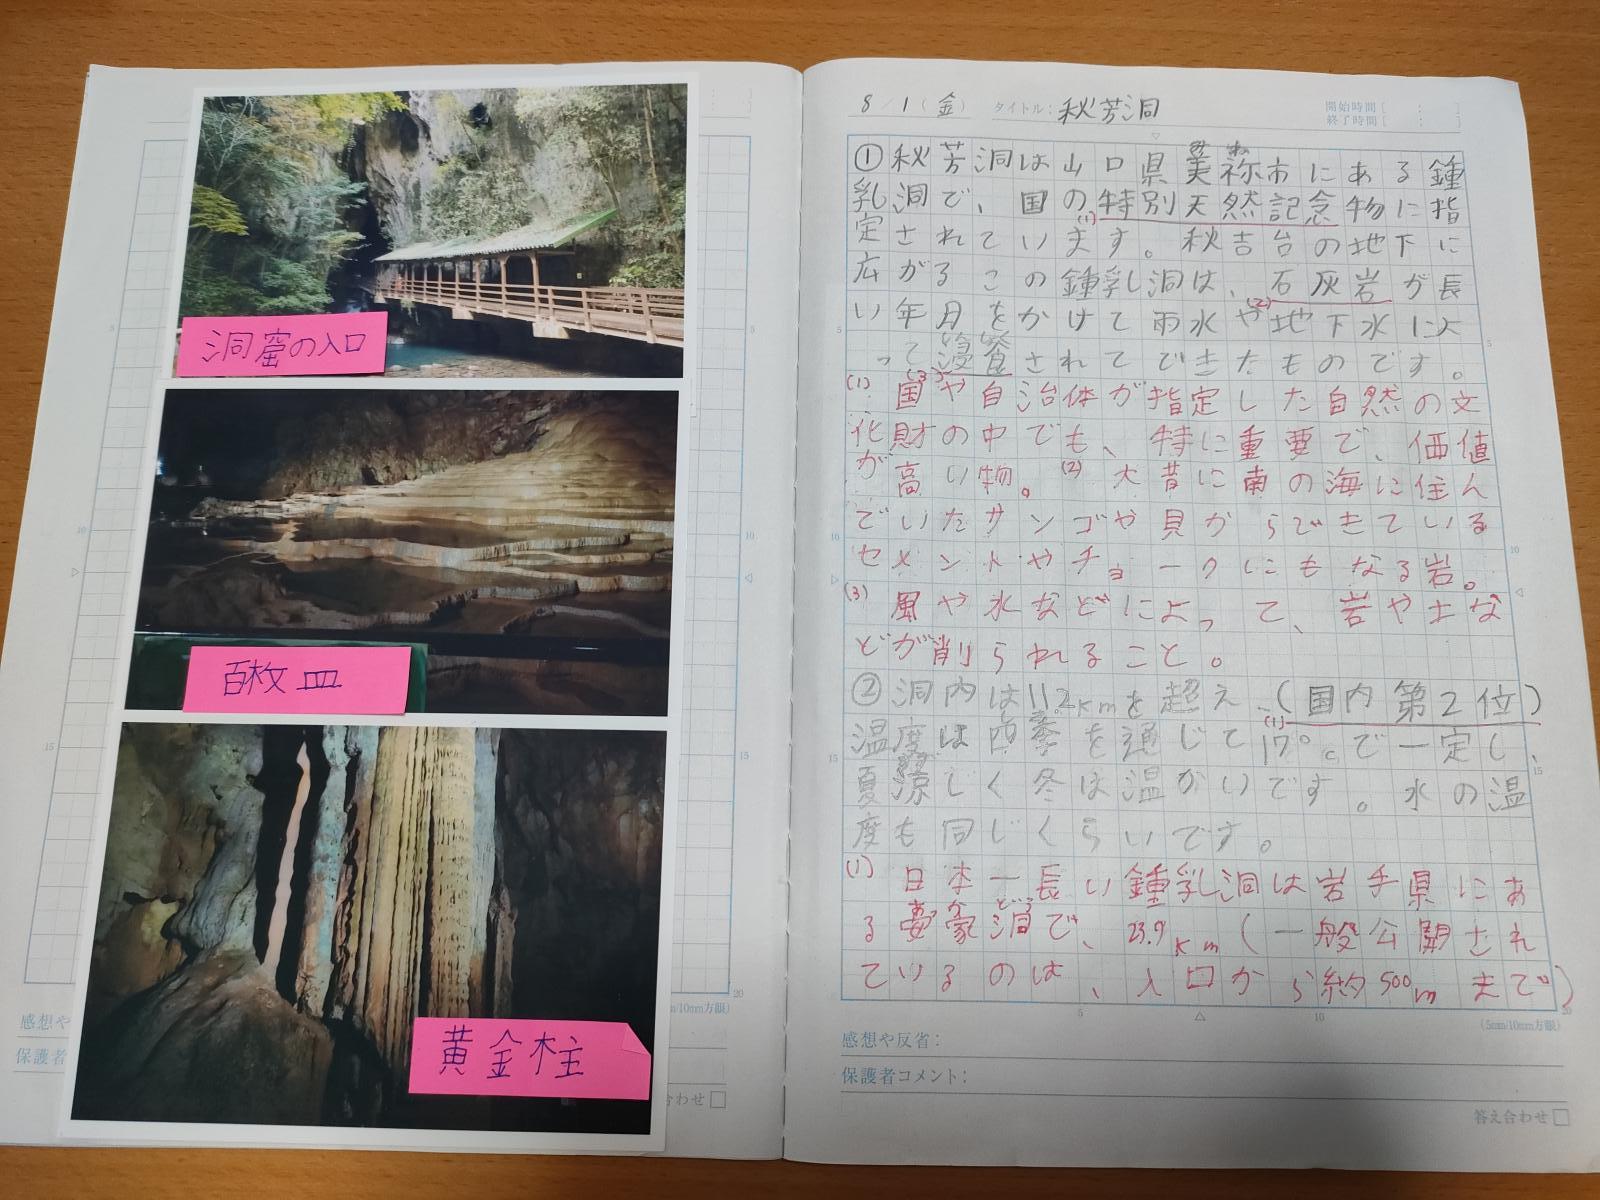 洞窟の入口
百枚皿
黄金柱
5
10
15
20
m/10mm方眼)
感想や
保護者
合わせ
8/1(金) タイトル: 秋芳洞
開始時間[ : ]
終了時間[ : ]
①秋芳洞は山口県美祢市にある鍾
みね
乳洞で、国の特別天然記念物に指
(1)
定されています。秋吉台の地下に
広がるこの鍾乳洞は、石灰岩が長
(2)
い年月をかけて雨水や地下水によ
って浸食されてできたものです。
しんしょく
(3)
(1) 国や自治体が指定した自然の文
化財の中でも、特に重要で、価値
が高い物。(2) 大昔に南の海に住ん
でいたサンゴや貝からできている
セメントやチョークにもなる岩。
(3) 風や水などによって、岩や土な
どが削られること。
②洞内は11.2kmを超え、(国内第2位)
(1)
温度は四季を通じて17℃で一定し、
夏涼しく冬は温かいです。水の温
度も同じくらいです。
(1) 日本一長い鍾乳洞は岩手県にあ
る安家洞で、23.7km(一般公開され
ているのは、入口から約500mまで)
5
10
15
20
(5mm/10mm方眼)
感想や反省:
保護者コメント:
答え合わせ